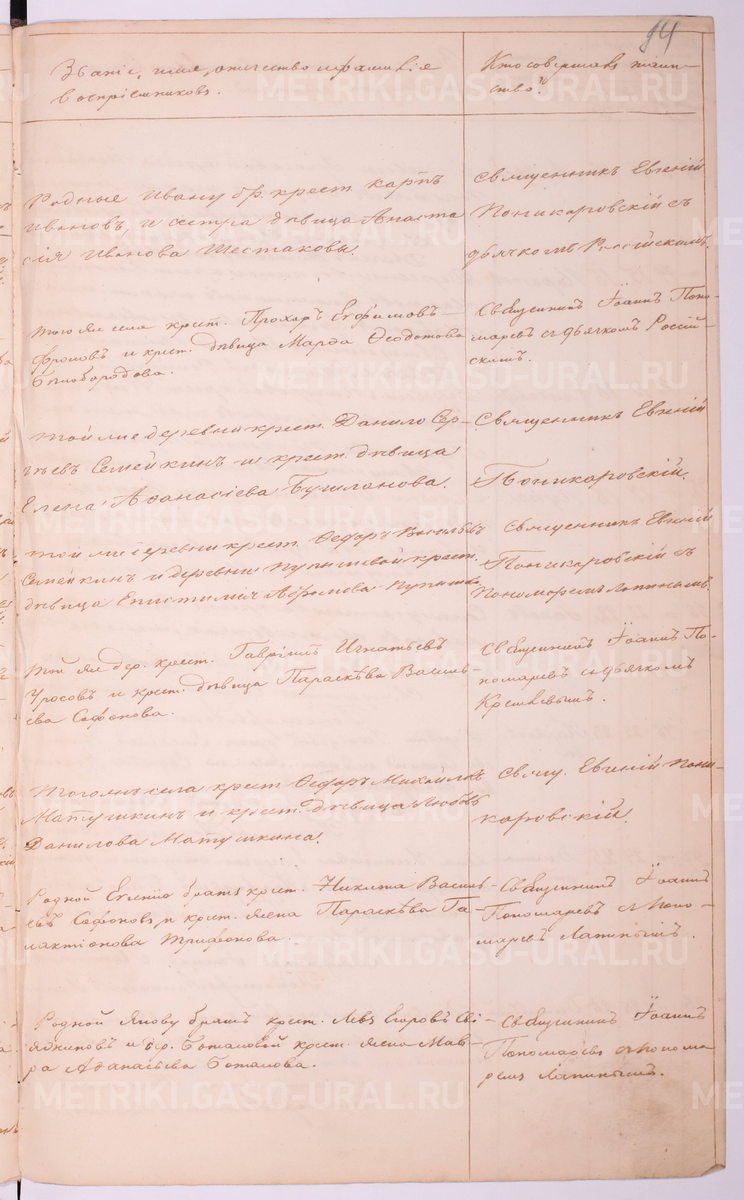 94
Званіе, имя, отчество и фамилія
воспріемниковъ.
Кто совершалъ таин-
ство?
Родные Ивану бр. крест. Карпъ
Ивановъ, и сестра дѣвица Анаста
сія Иванова Шестаковы.
Священникъ Евгеній
Поникаровскій съ
дьячкомъ Россійскимъ.
Того же села крест. Прохоръ Ефимовъ
Фроловъ и крест. дѣвица Марѳа Ѳеодотова
Бѣлобородова.
Священникъ Іоаннъ Поно-
маревъ съ дьячкомъ Россій-
скимъ.
Той же деревни крест. Данило Сер-
гѣевъ Семейкинъ и крест. дѣвица
Елена Аѳанасіева Бушланова.
Священникъ Евгеній
Поникаровскій.
Той же деревни крест. Ѳедоръ Васильевъ
Семейкинъ и деревни крест.
дѣвица Епистимія Абрамова
Священникъ Евгеній
Поникаровскій съ
пономаремъ Лапинымъ.
Той же дер. крест. Гавріилъ Игнатьевъ
Уросовъ и крест. дѣвица Параскѣва Василь-
ева Сафонова.
Священникъ Іоаннъ По-
номаревъ съ дьячкомъ
Того же села крест. Ѳедоръ Михайловъ
Матушкинъ и крест. дѣвица Любовь
Данилова Матушкина.
Свящ. Евгеній Пони-
каровскій.
Родной Евгенію братъ крест. Никита Василь-
евъ Сафоновъ и крест. жена Параскѣва Га-
лактіонова Трифонова.
Священникъ Іоаннъ
Пономаревъ съ поно-
маремъ Лапинымъ.
Родной Якову братъ крест. Левъ Егоровъ Сві-
яжениновъ и дер. Боталовой крест. жена Мав-
ра Аѳанасьева Боталова.
Священникъ Іоаннъ
Пономаревъ съ понома-
ремъ Лапинымъ.
METRIKI.GASO-URAL.RU